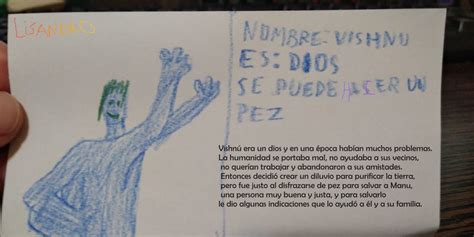 LISANDRO
NOMBRE: VISHNU
ES: DIOS
SE PUEDE HACER UN
PEZ
Vishnú era un dios y en una época habían muchos problemas.
La humanidad se portaba mal, no ayudaba a sus vecinos,
no querían trabajar y abandonaron a sus amistades.
Entonces decidió crear un diluvio para purificar la tierra,
pero fue justo al disfrazarse de pez para salvar a Manu,
una persona muy buena y justa, y para salvarlo
le dio algunas indicaciones que lo ayudó a él y a su familia.